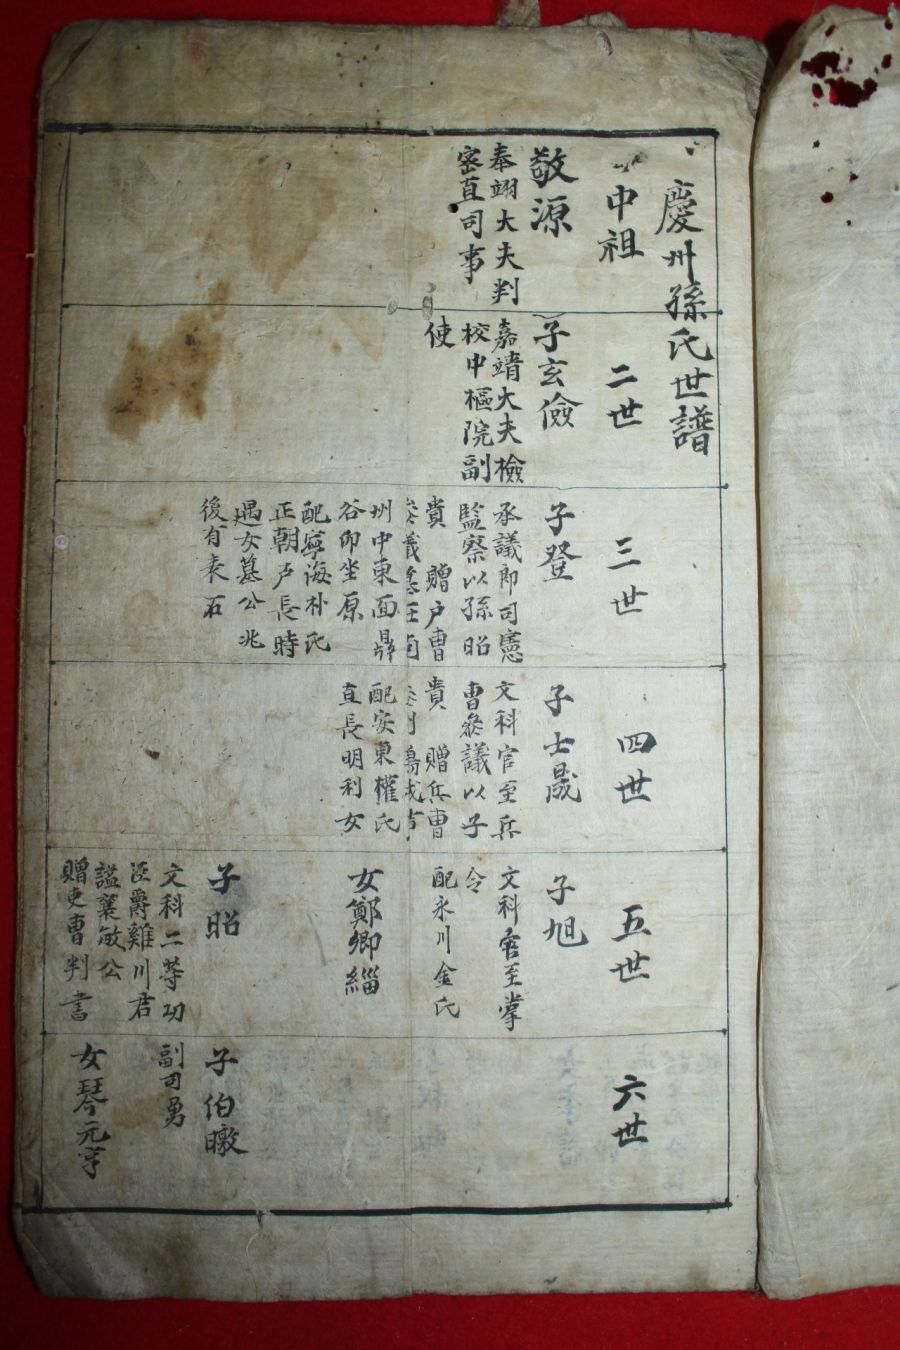 慶州孫氏世譜
中祖
敬源
奉翊大夫判
密直司事
二世
子玄儉
嘉靖大夫檢
校中樞院副
使
三世
子登
承議郎司憲
監察以孫昭
貴 贈戶曹
參議墓在南
州中東面鼎
谷卯坐原
配寧海朴氏
正朝戶長時
遇女墓公兆
後有表石
四世
子士晟
文科官至兵
曹參議以子
貴 贈兵曹
配安東權氏
直長明利女
五世
子旭
文科官至掌
令
配永川金氏
女鄭卿緇
子昭
文科二等功
臣爵雞川君
諡襄敏公
贈吏曹判書
六世
子伯暾
副司勇
女琴元亨